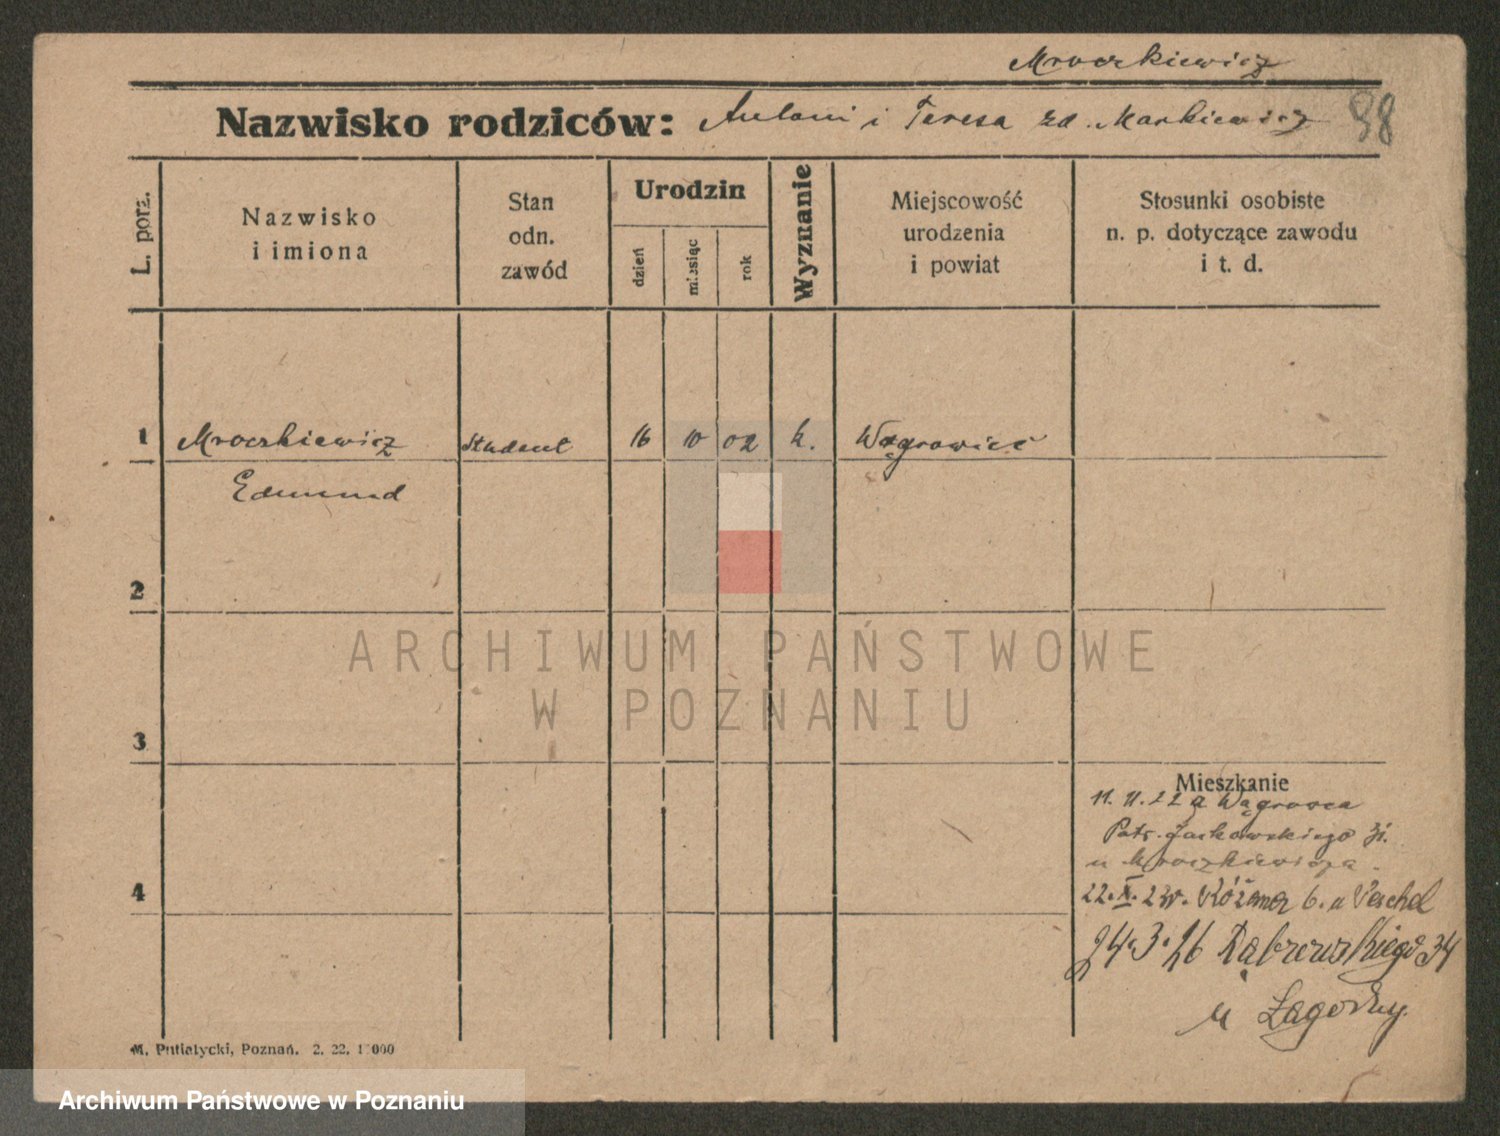 Mroczkiewicz
Nazwisko rodziców: Antoni i Teresa zd. Markiewicz 98
L. porz.
Nazwisko
i imiona
Stan
odn.
zawód
Urodzin
dzień
miesiąc
rok
Wyznanie
Miejscowość
urodzenia
i powiat
Stosunki osobiste
n. p. dotyczące zawodu
i t. d.
1 Mroczkiewicz student 16 10 02 k. Wągrowiec
Edmund
2
ARCHIWUM PAŃSTWOWE
W POZNANIU
3
Mieszkanie
11. 11. 22 z Wągrowca
Patr. Jackowskiego 31.
u Mroczkiewicza
4
22. X. 23 u
24. 3. 26 Dąbrowskiego 34
u Zagodny
M. Putiatycki, Poznań. 2. 22. 1 000
Archiwum Państwowe w Poznaniu